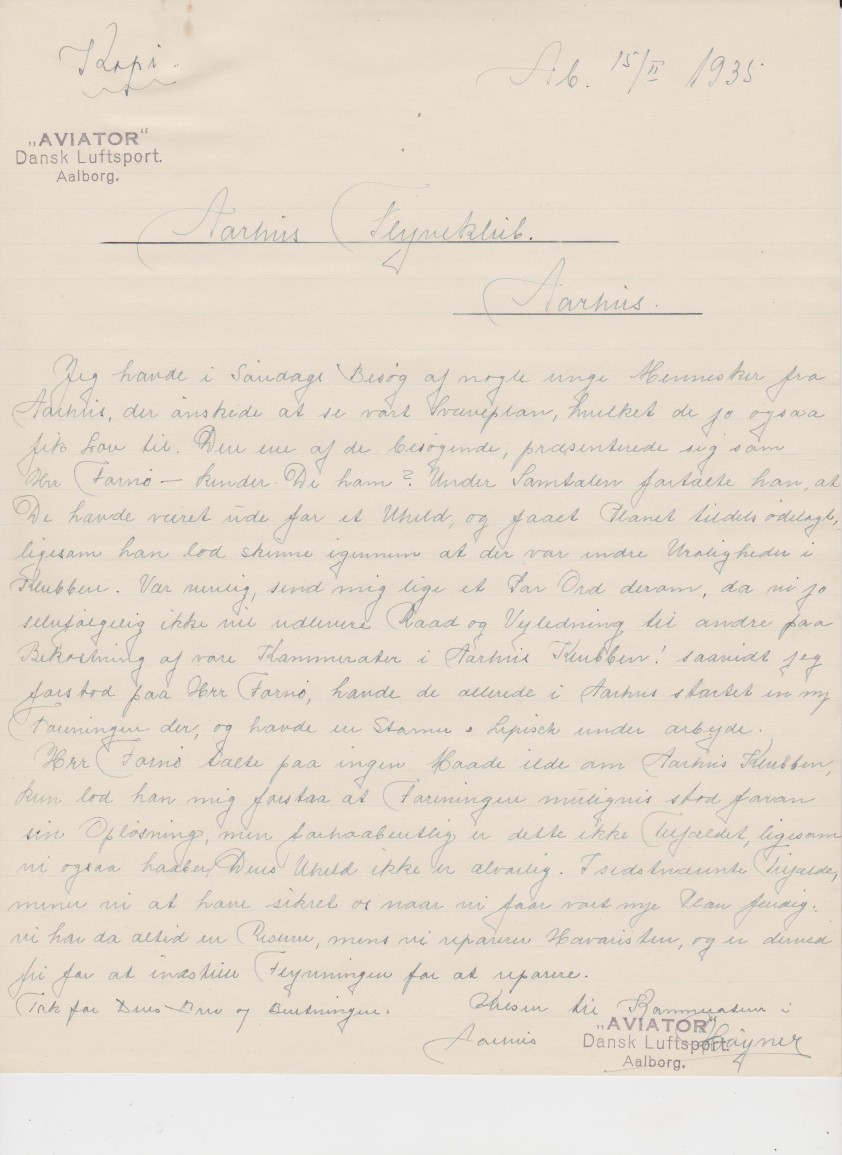 Kopi.
Ab. 15/II 1935
„AVIATOR“
Dansk Luftsport.
Aalborg.
Aarhus Flyveklub.
Aarhus.
Jeg havde i Søndags Besøg af nogle unge Mennesker fra
Aarhus, der ønskede at se vort Svæveplan, hvilket de jo ogsaa
fik Lov til. Den ene af de besøgende, præsenterede sig som
Hrr Fornø – kender De ham? Under Samtalen fortalte han, at
De havde været ude for et Uheld, og faaet Planet tildels ødelagt,
ligesom han lod skinne igennem at der var indre Uroligheder i
Klubben. Vær venlig, send mig lige et Par Ord derom, da vi jo
selvfølgelig ikke vil udlevere Raad og Vejledning til andre paa
Bekostning af vore Kammerater i Aarhus Klubben! saavidt jeg
forstod paa Hrr Fornø, havde de allerede i Aarhus startet en ny
Foreningen der, og havde en Stamer & Lipisch under arbejde.
Hrr Fornø talte paa ingen Maade ilde om Aarhus Klubben,
kun lod han mig forstaa at Foreningen muligvis stod foran
sin Opløsning, men forhaabentlig er dette ikke Tilfældet, ligesom
vi ogsaa haaber, Deres Uheld ikke er alvorlig. I sidstnævnte Tilfælde,
mener vi at have sikret os naar vi faar vort nye Plan færdig.
vi har da altid en Reserve, mens vi reparerer Havaristen, og er derved
fri for at indstille Flyvningen for at reparere.
Tak for Deres Brev og Beretningen. Hilsen til Kammeraterne i
Aarhus Høyner
„AVIATOR“
Dansk Luftsport.
Aalborg.